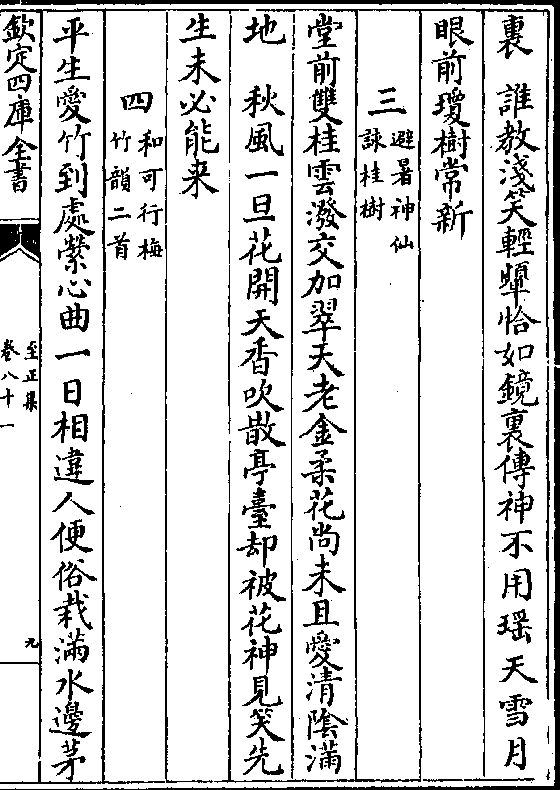 裏　誰教淺笑輕顰恰如鏡裏傳神不用瑶天雪月
眼前瓊樹常新
三　避暑神仙
詠桂樹
堂前雙桂雲潑交加翠天老金柔花尚未且愛清陰滿
地　秋風一旦花開天香吹散亭臺却被花神見笑先
生未必能来
四　和可行梅
竹韻二首
平生愛竹到處縈心曲一日相違人便俗栽滿水邊茅
欽定四庫全書
至正集
卷八十一
九